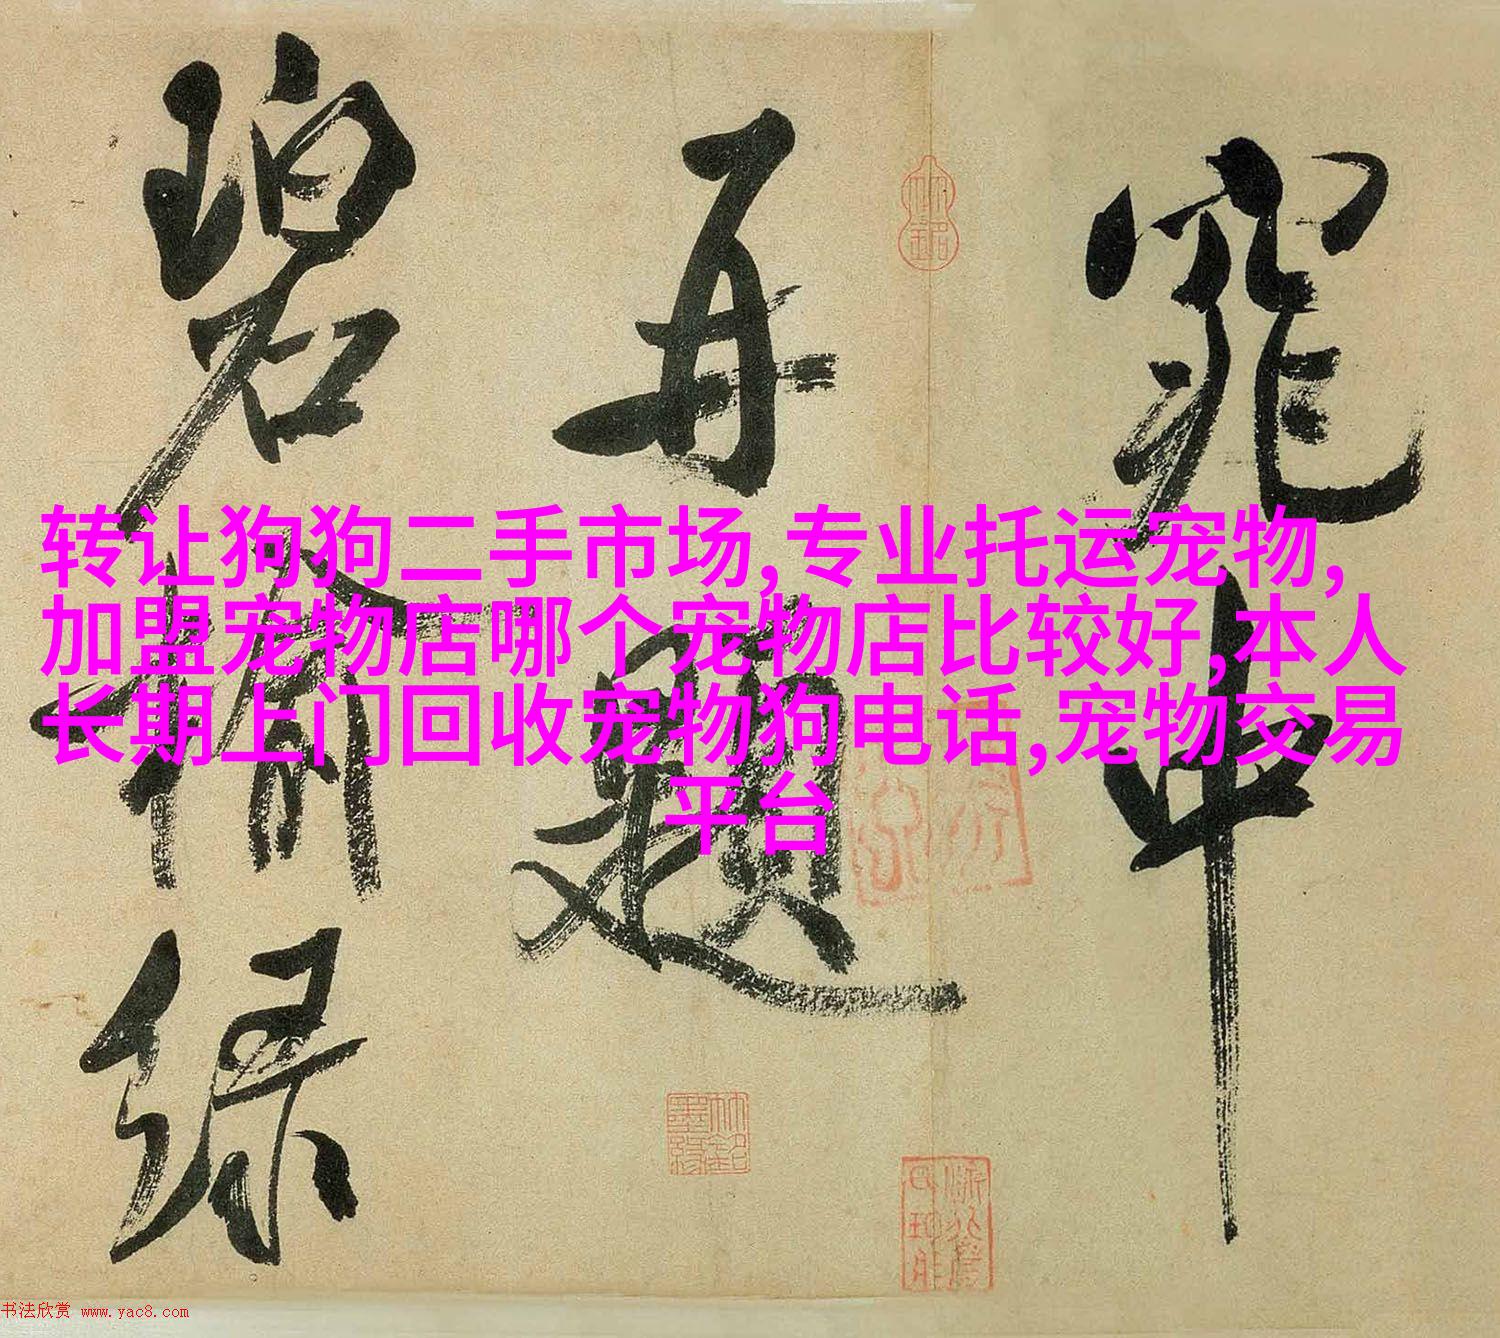 窕中
再題
碧榆綠
转让狗狗二手市场,专业托运宠物,
加盟宠物店哪个宠物店比较好,本人
长期上门回收宠物狗电话,宠物交易
平台
书法欣赏 www.yac8.com